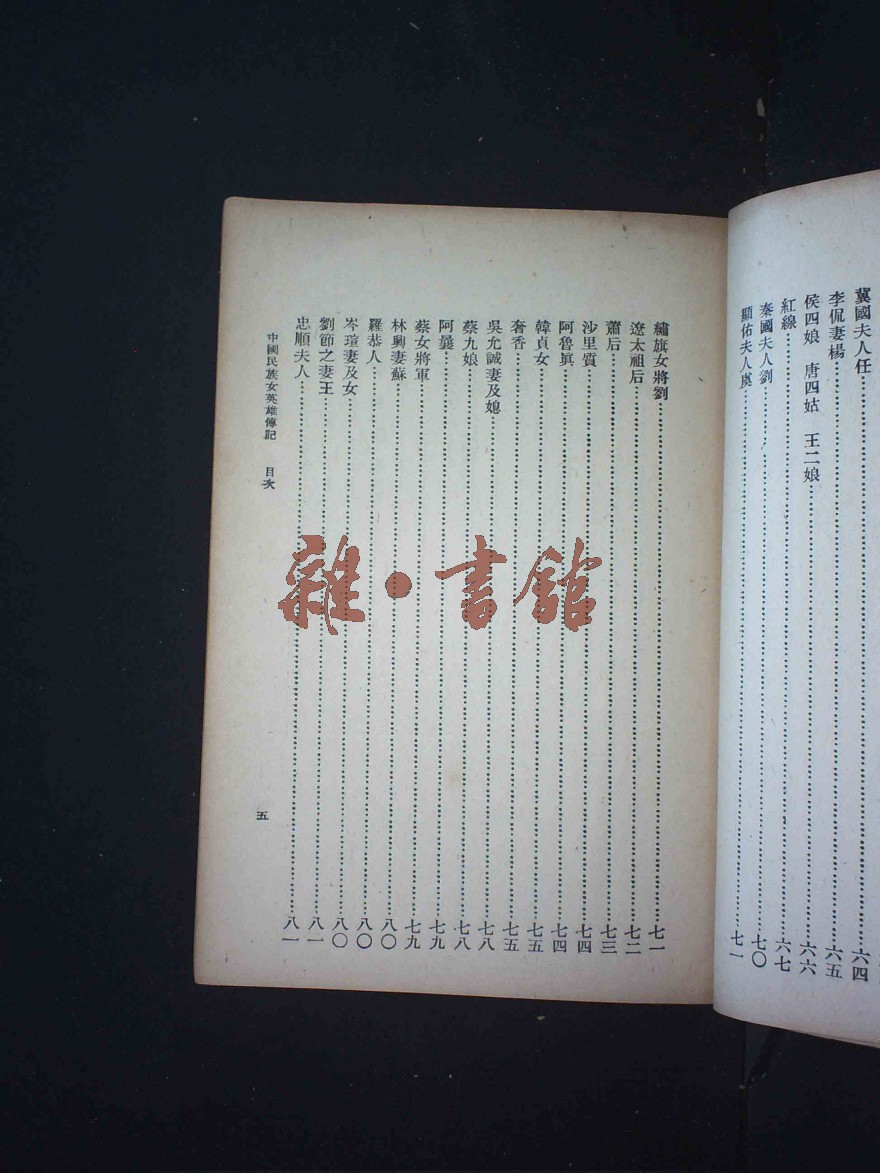 冀國夫人任……六四
李侃妻楊……六五
侯四娘 唐四姑 王二娘……六六
紅線……六七
秦國夫人劉……七〇
顯佑夫人虞……七一
繡旗女將劉……七一
遼太祖后……七二
蕭后……七三
沙里質……七四
阿魯眞……七四
韓貞女……七五
奢香……七五
吳允誠妻及媳……七八
蔡九娘……七八
阿曩……七九
蔡女將軍……七九
林興妻蘇……八〇
羅恭人……八〇
岑瑄妻及女……八〇
劉節之妻王……八一
忠順夫人……八一
中國民族女英雄傳記 目次
五
雜·書館